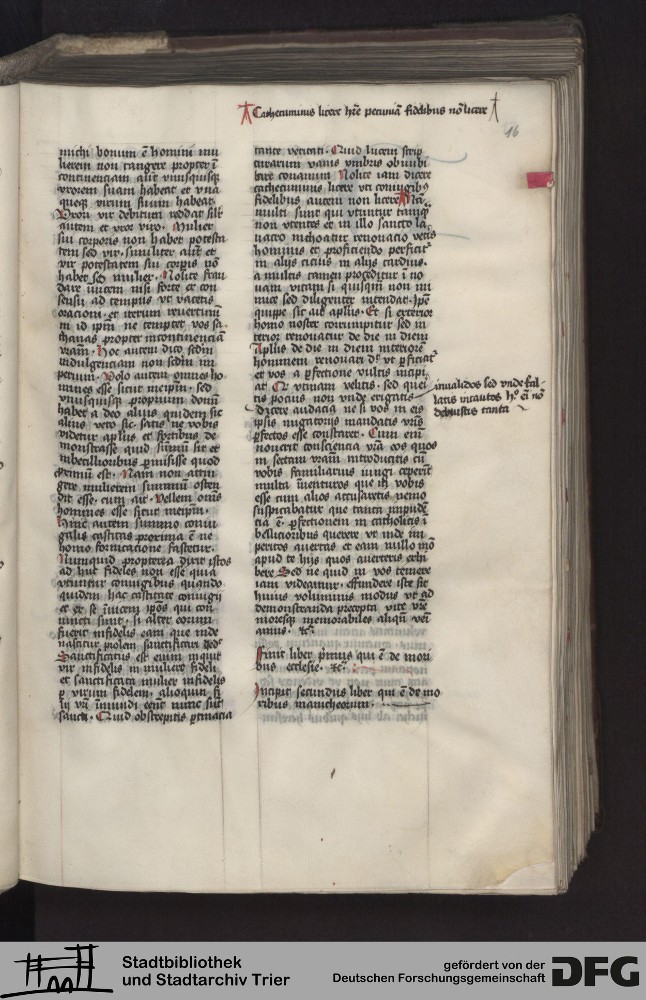 Cathecuminis licere hr̄e pecuniā fidelibus nō licere
16
michi bonum ē homini mu
lierem non tangere propter ī
continenciam aūt vnusquisqꝫ
vxorem suam habeat et vna
queqꝫ virum suum habeat
Vxori vir debitum reddat silr̄
autem et vxor viro. Mulier
sui corporis non habet potesta
tem sed vir. similiter aūt et
vir potestatem sui corpis nō
habet sed mulier. Nolite frau
dare inuicem nisi forte ex con
sensu ad tempus vt vacetis
oracioni. et iterum reuertimī
in id ipm̄ ne temptet vos sa
thanas propter incontinenciā
vram̄. Hoc autem dico scdm̄
indulgenciam non scdm̄ im
perium. Volo autem omnes ho
mines esse sicut meipm̄. sed
vnusquisqꝫ proprium donū
habet a deo alius quidem sic
alius vero sic. satis ne vobis
videtur aplūs et fortibus de
monstrasse quid summū sit et
imbecillioribus ꝑmisisse quod
proximū est. Nam non attin
gere mulierem summum osten
dit esse. cum ait. Vellem omēs
homines esse sicut meipm̄.
Huic autem summo coniu
galis castitas proxima ē ne
homo fornicacione vastetur.
Numquid propterea dixit istos
ad huc fideles non esse quia
vtuntur coniugibus quando
quidem hac castitate coniugij
et ex se īuicem ip̄os qui con
iuncti sunt. si alter eorum
fuerit infidelis eam que inde
nascitur prolem sanctificari dicit
Sanctificatus est enim inquit
vir infidelis in muliere fideli
et sanctificata mulier infidelis
ꝑ virum fidelem. alioquin fi
lij vrī īmundi eēnt nunc aūt
sancti. Quid obstrepitis ꝑtinacia
tante veritati. Quid lucem scrip
turarum vanis vmbris obnubi
lare conamini Nolite iam dicere
cathecuminis licere vti coniugibꝫ
fidelibus autem non licere Nā
multi sunt qui vtuntur tamqꝫ
non vtentes et in illo sancto la
uacro inchoatur renouacio veteris
hominis et proficiendo perficitr̄
in alijs cicius in alijs tardius.
a multis tamen proceditur ī no
uam vitam si quisqm̄ non ini
mice sed diligenter intendat. Ipē
quippe sic ait aplūs. Et si exterior
homo noster corrumpitur sed in
terior renouatur de die in diem
Aplūs de die in diem interiorē
hominem renouari dt̄ vt ꝑficiatr̄
et vos a ꝑfectione vultis incipi
at. Et vtinam velitis. sed quei
tis pocius non vnde erigatis
dicere audacia ne si vos in eis
ipsis nugatorijs mandatis vrīs
ꝑfectos esse constaret. Cum enī
nouerit consciencia vrā eos quos
in sectam vram̄ introducitis cū
vobis familiarius iungi ceperīt
multa īuenturos que in vobis
esse cum alios accusaretis nemo
suspicabatur que tanta impudē
cia ē. ꝑfectionem in catholicis ī
becillioribus querere vt inde im
peritos auertas et eam nullo mō
apud te hijs quos auerteris exhi
bere Sed ne quid in vos temere
iam videamur. effundere iste sit
huius voluminis modus vt ad
demonstranda precepta vite vrē
moresqꝫ memorabiles aliqn̄ veni
amus. &c.
inualidos sed vnde fal
latis incautos hoc enī nō
debuistis tanta
Finit liber primus qui ē de mori
bus ecclesie. &c.
Incipit secundus liber qui ē de mo
ribus manicheorum.
Stadtbibliothek
und Stadtarchiv Trier
gefördert von der
Deutschen Forschungsgemeinschaft
DFG